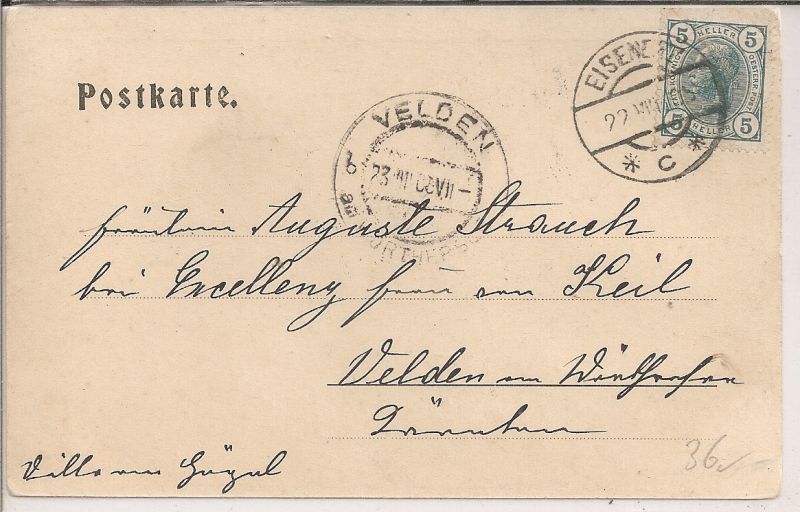 Postkarte.
EISENERZ
22 VIII
* C *
5 HELLER 5
OESTERR. POST
5 HELLER 5
VELDEN
b 23 VIII 03 VII
am WÖRTHERSEE
Fräulein Auguste Strauch
bei Excellenz Frau von Keil
Velden am Wörthersee
Kärnten
Villa am Hügel
36.-